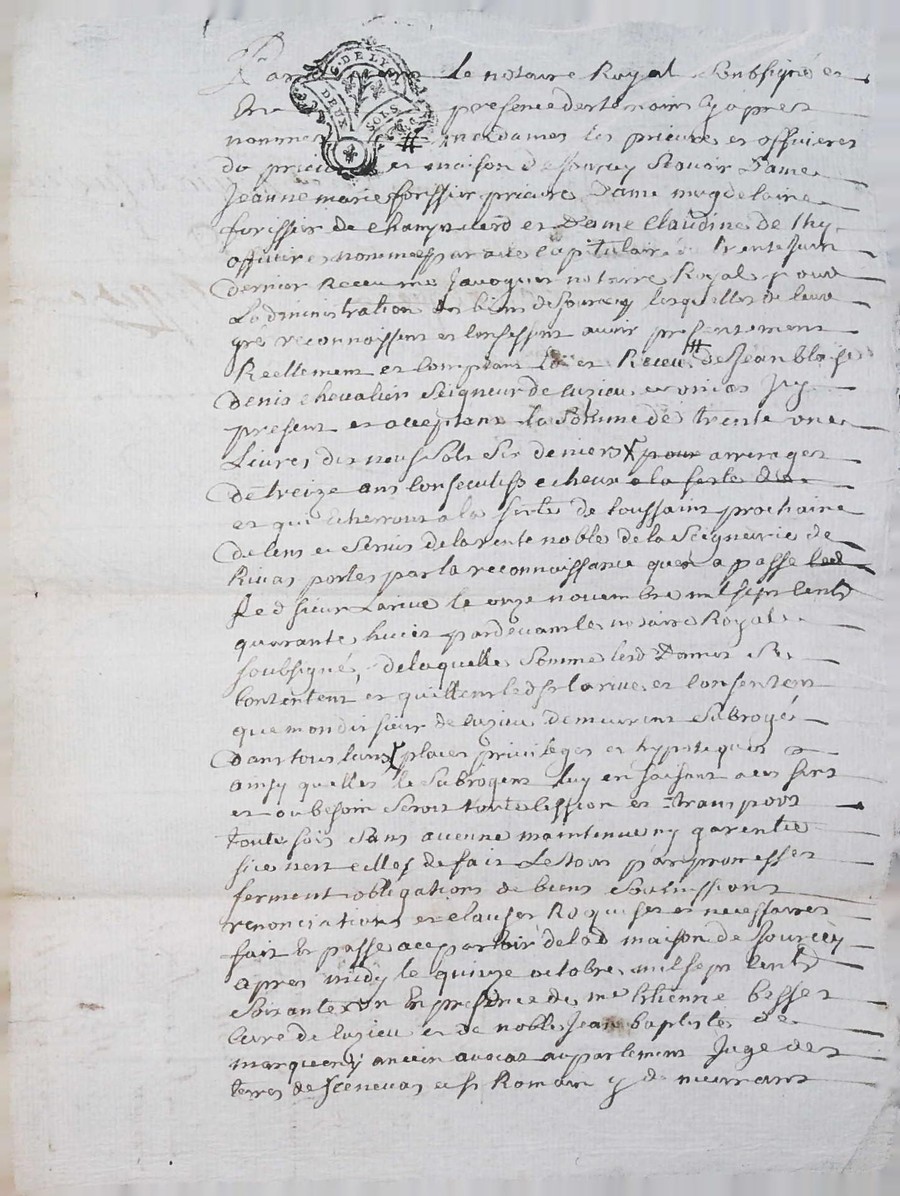 Par devant le notaire Royal soubsigné et
En presence des temoins cy apres
G. DE LYON
DEUX SOLS
nommes # mes dames les prieure et officieres
du prieuré et maison de Jourcey scavoir Dame
Jeanne marie forissier prieure Dame magdelaine
forissier de Champ et Dame Claudine de thy
officieres nommes par acte Capitulaire trente Juin
dernier Receu me Javoguer notaire Royal pour
Ladministration des biens de Jourcey lesquelles de leur
gré reconnoissent et Confessent avoir presentement
Reellement et Comptant et Receu # de Jean blaise
Denis chevalier Seigneur de cuzieu et unias Icy
present et acceptant La Somme de trente une
Livres dix neuf Sols Six deniers X pour arrerages
de treize ans Consecutifs echeux a la feste de
et qui Echerront a la feste de toussaint prochaine
de Cens et Servis de la rente noble de la Seigneurie de
Rivas portes par la reconnaissance quen a passe led
Led sieur Larive le onze novembre mil sept Cent
quarante huict pardevant le notaire Royal
soubsigné, de laquelle Somme lesd Dames Se
Contentent et quittent led sr larive et Consentent
que mondit sieur de cuzieu demeurent Subrogé
Dans tous leurs X places privileges et hypoteques
ainsy quelles le Subrogent luy en faisant aces fins
et ou besoin Seroit toute Cession et transport
toute fois Sans aucune maintenue ny garentie
si ce nest celles de fait Le tout par promesses
serment obligations de biens Soumissions
renonciations et clauses Requises et necessaires
fait et passé au parloir de lad maison de Jourcey
apres midy le quinze octobre mil sept Cent
Soixante en presence de me Etienne bisset
Curé de Cuzieu et de noble Jean baptiste de
marquet ancien avocat au parlement Juge des
terres de fenevas et st Romain y demeurant